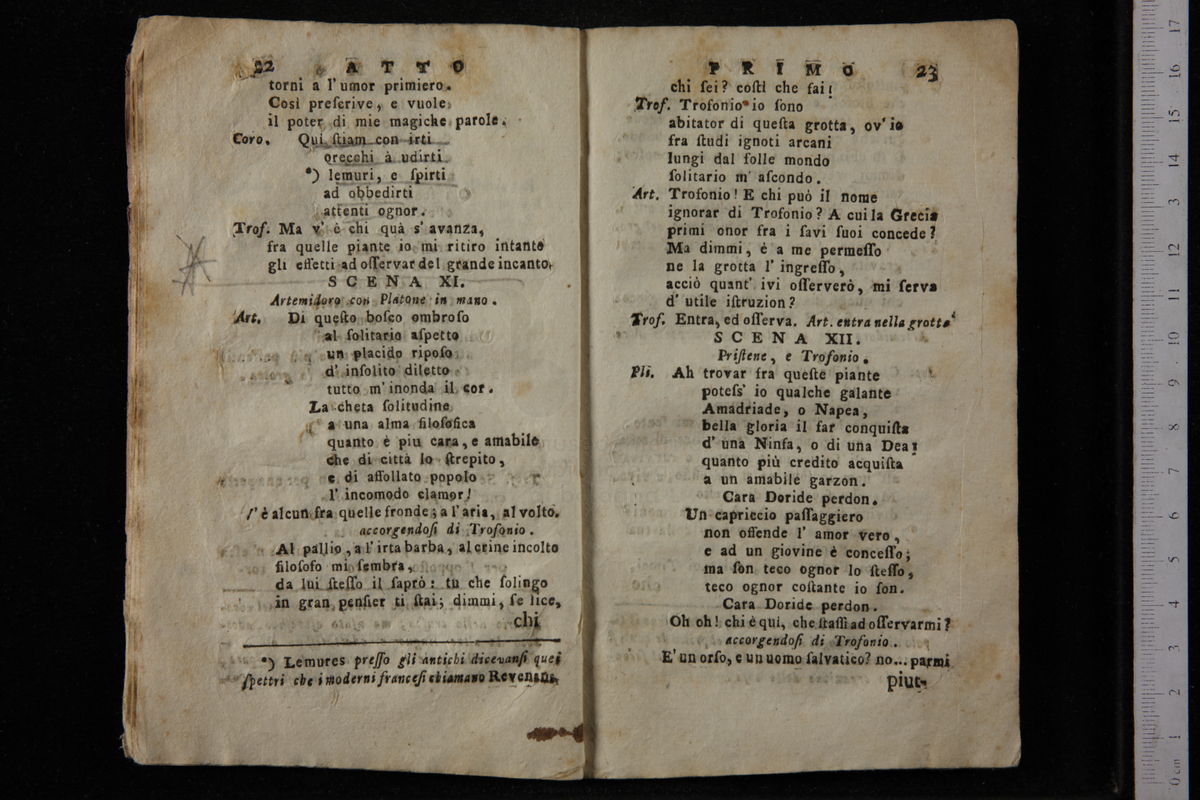 22 ATTO
torni a l' umor primiero.
Così preſcrive, e vuole
il poter di mie magiche parole.
Coro. Qui ſtiam con irti
orecchi à udirti
*) lemuri, e ſpirti
ad obbedirti
attenti ognor.
Trof. Ma v' è chi quà s' avanza,
fra quelle piante io mi ritiro intanto
gli effetti ad oſſervar del grande incanto.
SCENA XI.
Artemidoro con Platone in mano.
Art. Di queſto boſco ombroſo
al ſolitario aſpetto
un placido ripoſo
d' inſolito diletto
tutto m' inonda il cor.
La cheta ſolitudine
a una alma filoſofica
quanto è piu cara, e amabile
che di città lo ſtrepito,
e di affollato popolo
l' incomodo clamor!
V' è alcun fra quelle fronde; a l' aria, al volto.
accorgendoſi di Trofonio.
Al pallio, a l' irta barba, al crine incolto
filoſofo mi ſembra,
da lui ſteſſo il ſaprò: tu che ſolingo
in gran penſier ti ſtai; dimmi, ſe lice,
chi
*) Lemures preſſo gli antichi dicevanſi quei
ſpettri che i moderni franceſi chiamano Revenans.
PRIMO 23
chi ſei? coſtì che fai!
Trof. Trofonio io ſono
abitator di queſta grotta, ov' io
fra ſtudi ignoti arcani
lungi dal folle mondo
ſolitario m' aſcondo.
Art. Trofonio! E chi può il nome
ignorar di Trofonio? A cui la Grecia
primi onor fra i ſavi ſuoi concede?
Ma dimmi, é a me permeſſo
ne la grotta l' ingreſſo,
acciò quant' ivi oſſerverò, mi ſerva
d' utile iſtruzion?
Trof. Entra, ed oſſerva. Art. entra nella grotta
SCENA XII.
Priſtene, e Trofonio.
Pli. Ah trovar fra queſte piante
poteſs' io qualche galante
Amadriade, o Napea,
bella gloria il far conquiſta
d' una Ninfa, o di una Dea!
quanto più credito acquiſta
a un amabile garzon.
Cara Doride perdon.
Un capriccio paſſaggiero
non offende l' amor vero,
e ad un giovine è conceſſo;
ma ſon teco ognor lo ſteſſo,
teco ognor coſtante io ſon.
Cara Doride perdon.
Oh oh! chi è qui, che ſtaſſi ad oſſervarmi?
accorgendoſi di Trofonio.
E' un orſo, e un uomo ſalvatico? no... parmi
piut-
0 cm 1 2 3 4 5 6 7 8 9 10 11 12 3 14 15 16 17